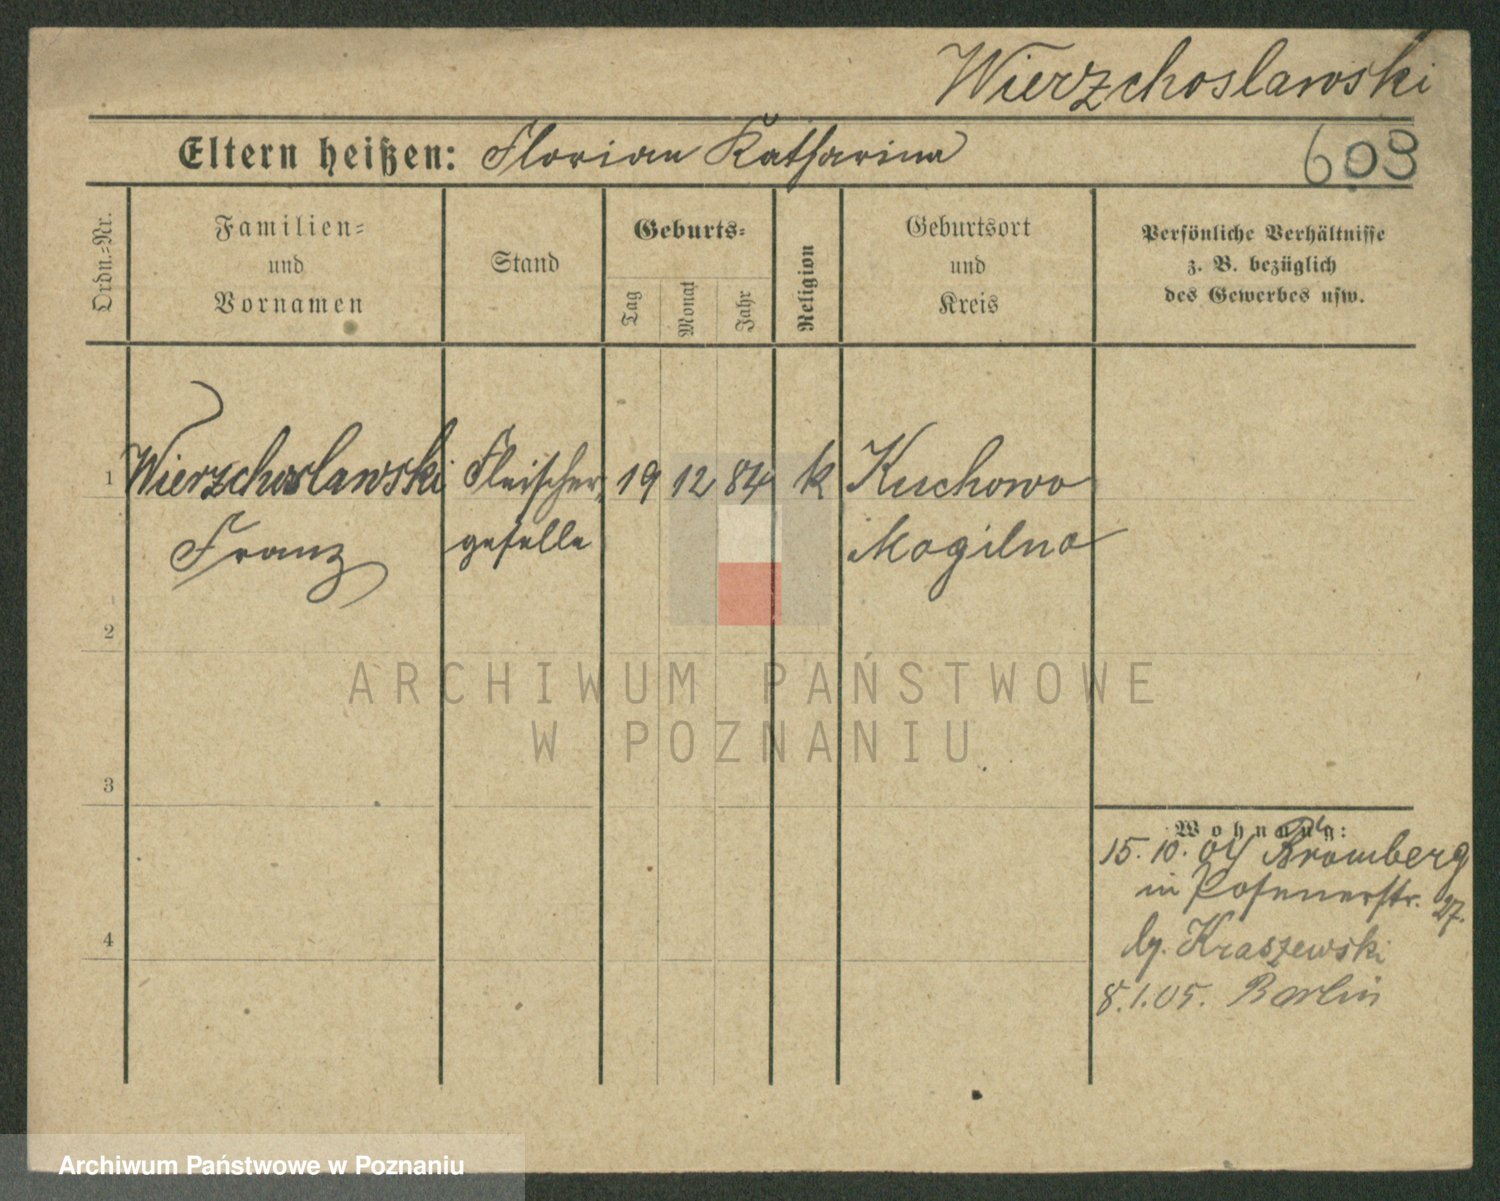 Wierzchoslawski
Eltern heißen: Florian Katharina 603
Ordn.-Nr.
Familien- und Vornamen
Stand
Geburts-
Tag
Monat
Jahr
Religion
Geburtsort und Kreis
Persönliche Verhältnisse
z. B. bezüglich
des Gewerbes usw.
1 Wierzchoslawski Fleischer 19 12 84 k Kuchowo
Franz geselle Mogilno
2
ARCHIWUM PAŃSTWOWE
W POZNANIU
3
Wohnung:
15. 10. 04 Bromberg
in Posenerstr. 27.
4
b/. Kraszewski
8.1.05. Berlin
Archiwum Państwowe w Poznaniu